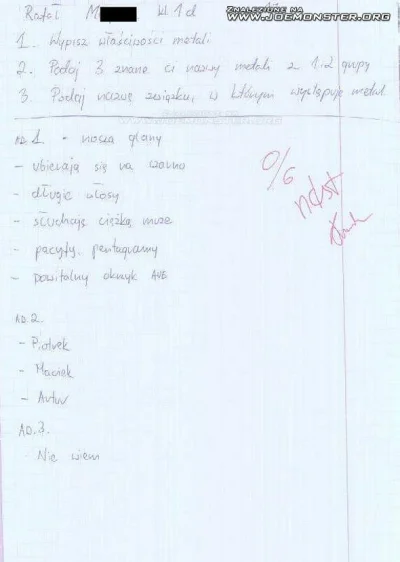 ZNALEZIONE NA
WWW.JOEMONSTER.ORG
Rafał M kl 1d
1. Wypisz właściwości metali
2. Podaj 3 znane ci nazwy metali z 1 i 2 grupy
3. Podaj nazwę związku, w którym występuje metal
AD.1. - noszą glany
- ubierają się na czarno
- długie włosy
- słuchają ciężką muze
- pacyfy, pentagramy
- powitalny okrzyk AVE
0/6
ndst
AD.2.
- Piotrek
- Maciek
- Artur
AD.3.
- Nie wiem